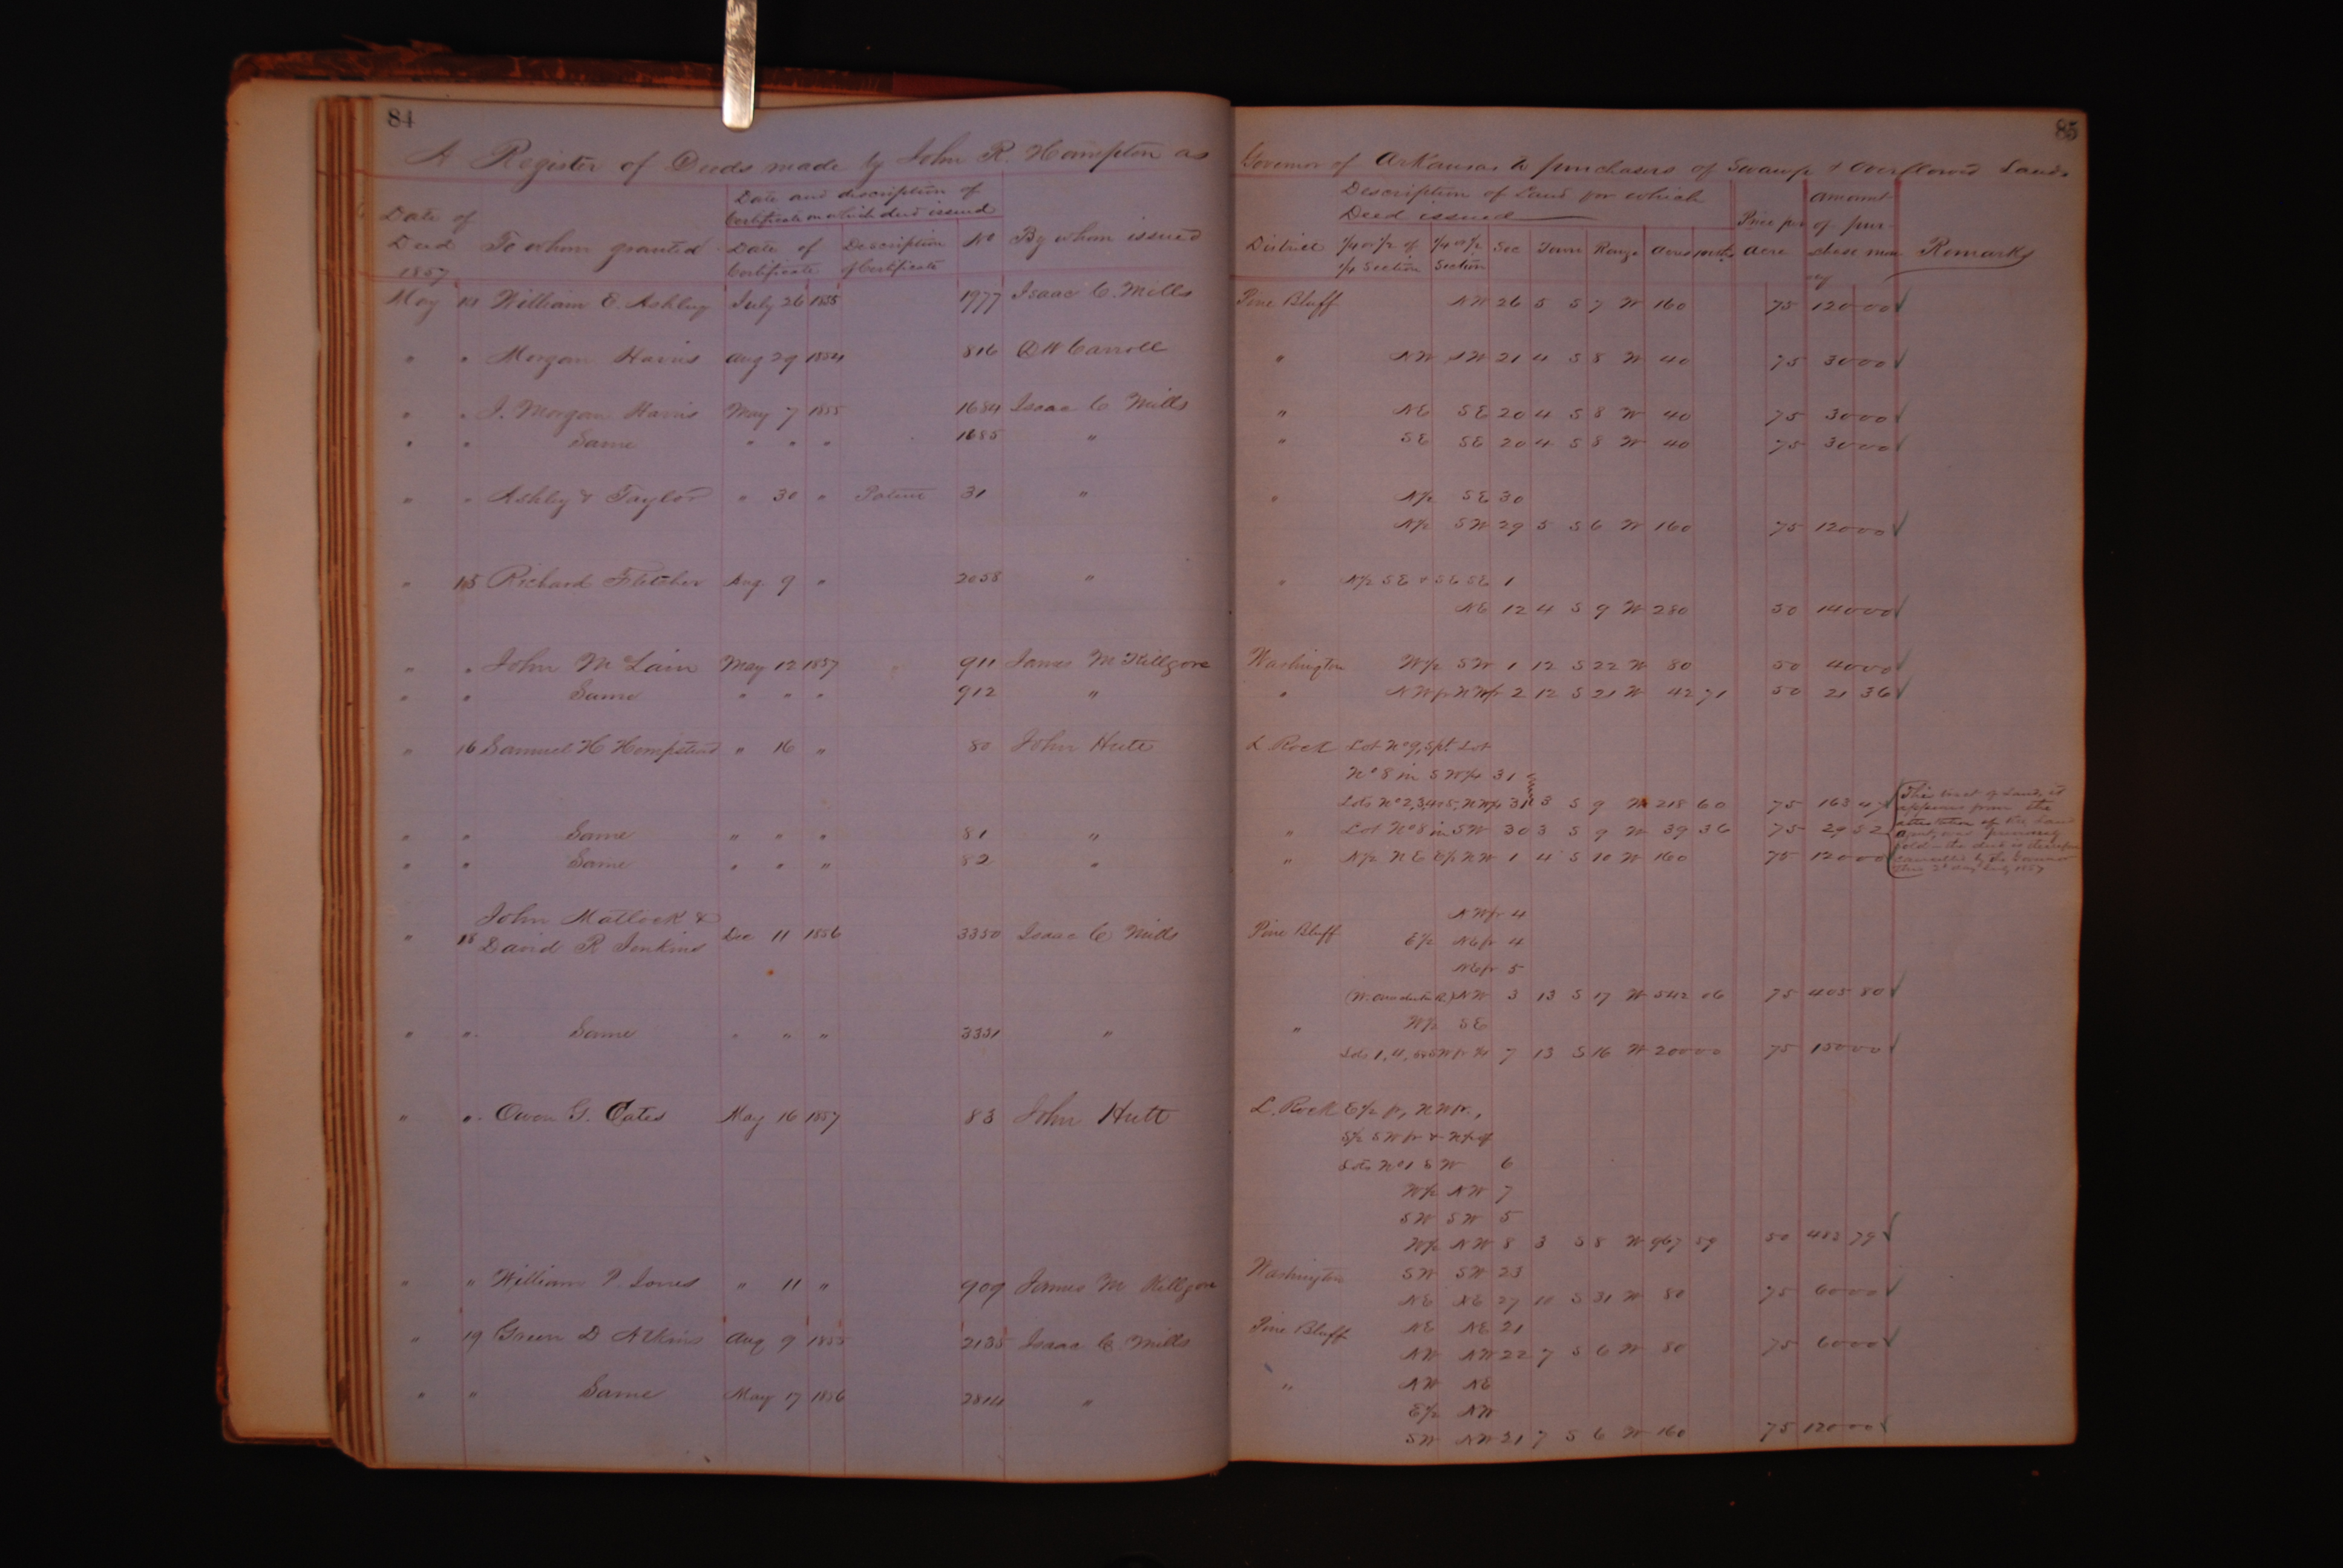 84
A Register of Deeds made by John R. Hampton as
Date of Deed 1857 | To whom granted | Date and discription of Certificate on which deed issued | Date of Certificate | Description of Certificate | No | By whom issued
May 13 William E. Ashley July 26 1855 1977 Isaac C. Mills
" " Morgan Harris Aug 29 1854 816 D W Carroll
" " J. Morgan Harris May 7 1855 1684 Isaac C Mills
" " Same " " " 1685 "
" " Ashley & Taylor " 30 " Patent 31 "
" 15 Richard Fletcher Aug 9 " 2058 "
" " John McLain May 12 1857 911 James M Killgore
" " Same " " " 912 "
" 16 Samuel H Hempstead " 16 " 80 John Hutt
" " Same " " " 81 "
" " Same " " " 82 "
John Matlock &
" 18 David R Jenkins Dec 11 1856 3350 Isaac C Mills
" " Same " " " 3351 "
" " Owen G. Cates May 16 1857 83 John Hutt
" " William P. Jones " 11 " 909 James M Killgore
" 19 Green D Atkins Aug 9 1855 2135 Isaac C. Mills
" " Same May 17 1856 2814 "
85
Governor of Arkansas to purchasers of Swamp & Overflowed Lands
Description of Land for which
Deed issued
District | 1/4 or 1/2 of 1/4 Section | 1/4 or 1/2 Section | Sec | Town | Range | Acres | Price per acre | amount of purchase money | Remarks
Pine Bluff NW 26 5 S 7 W 160 75 120 00 ✓
" NW SW 21 4 S 8 W 40 75 30 00 ✓
" NE SE 20 4 S 8 W 40 75 30 00 ✓
" SE SE 20 4 S 8 W 40 75 30 00 ✓
" N1/2 SE 30
N1/2 SW 29 5 S 6 W 160 75 120 00 ✓
" N1/2 SE & SE SE 1
NE 12 4 S 9 W 280 50 140 00 ✓
Washington W1/2 SW 1 12 S 22 W 80 50 40 00 ✓
" NW fr NW fr 2 12 S 21 W 42 71 50 21 36 ✓
L. Rock Lot No 9, Spt. Lot
No 8 in SW1/4 31
Lots No 2,3,4&5, NW1/4 31 3 S 9 W 218 60 75 163 47 ✓
" Lot No 8 in SW 30 3 S 9 W 39 36 75 29 52
" N1/2 NE E1/2 NW 1 4 S 10 W 160 75 120 00
This tract of Land, it
appears from the
attestation of the Land
Agent, was
sold - the deed is therefore
cancelled by the Governor
this 2d day July 1857
NW fr 4
Pine Bluff E1/2 NE fr 4
NE fr 5
NW 3 13 S 17 W 542 06 75 405 80 ✓
" W1/2 SE
Lots 1, 4, 7 13 S 16 W 200 00 75 150 00 ✓
L. Rock E1/2 fr, NW fr,
S1/2 SW fr & N1/2 of
Lots No 1 SW 6
W1/2 NW 7
SW SW 5
W1/2 NW 8 3 S 8 W 967 59 50 483 79 ✓
Washington SW SW 23
NE NE 27 10 S 31 W 80 75 60 00 ✓
Pine Bluff NE NE 21
NW NW 22 7 S 6 W 80 75 60 00 ✓
" NW NE
E1/2 NW
SW NW 21 7 S 6 W 160 75 120 00 ✓